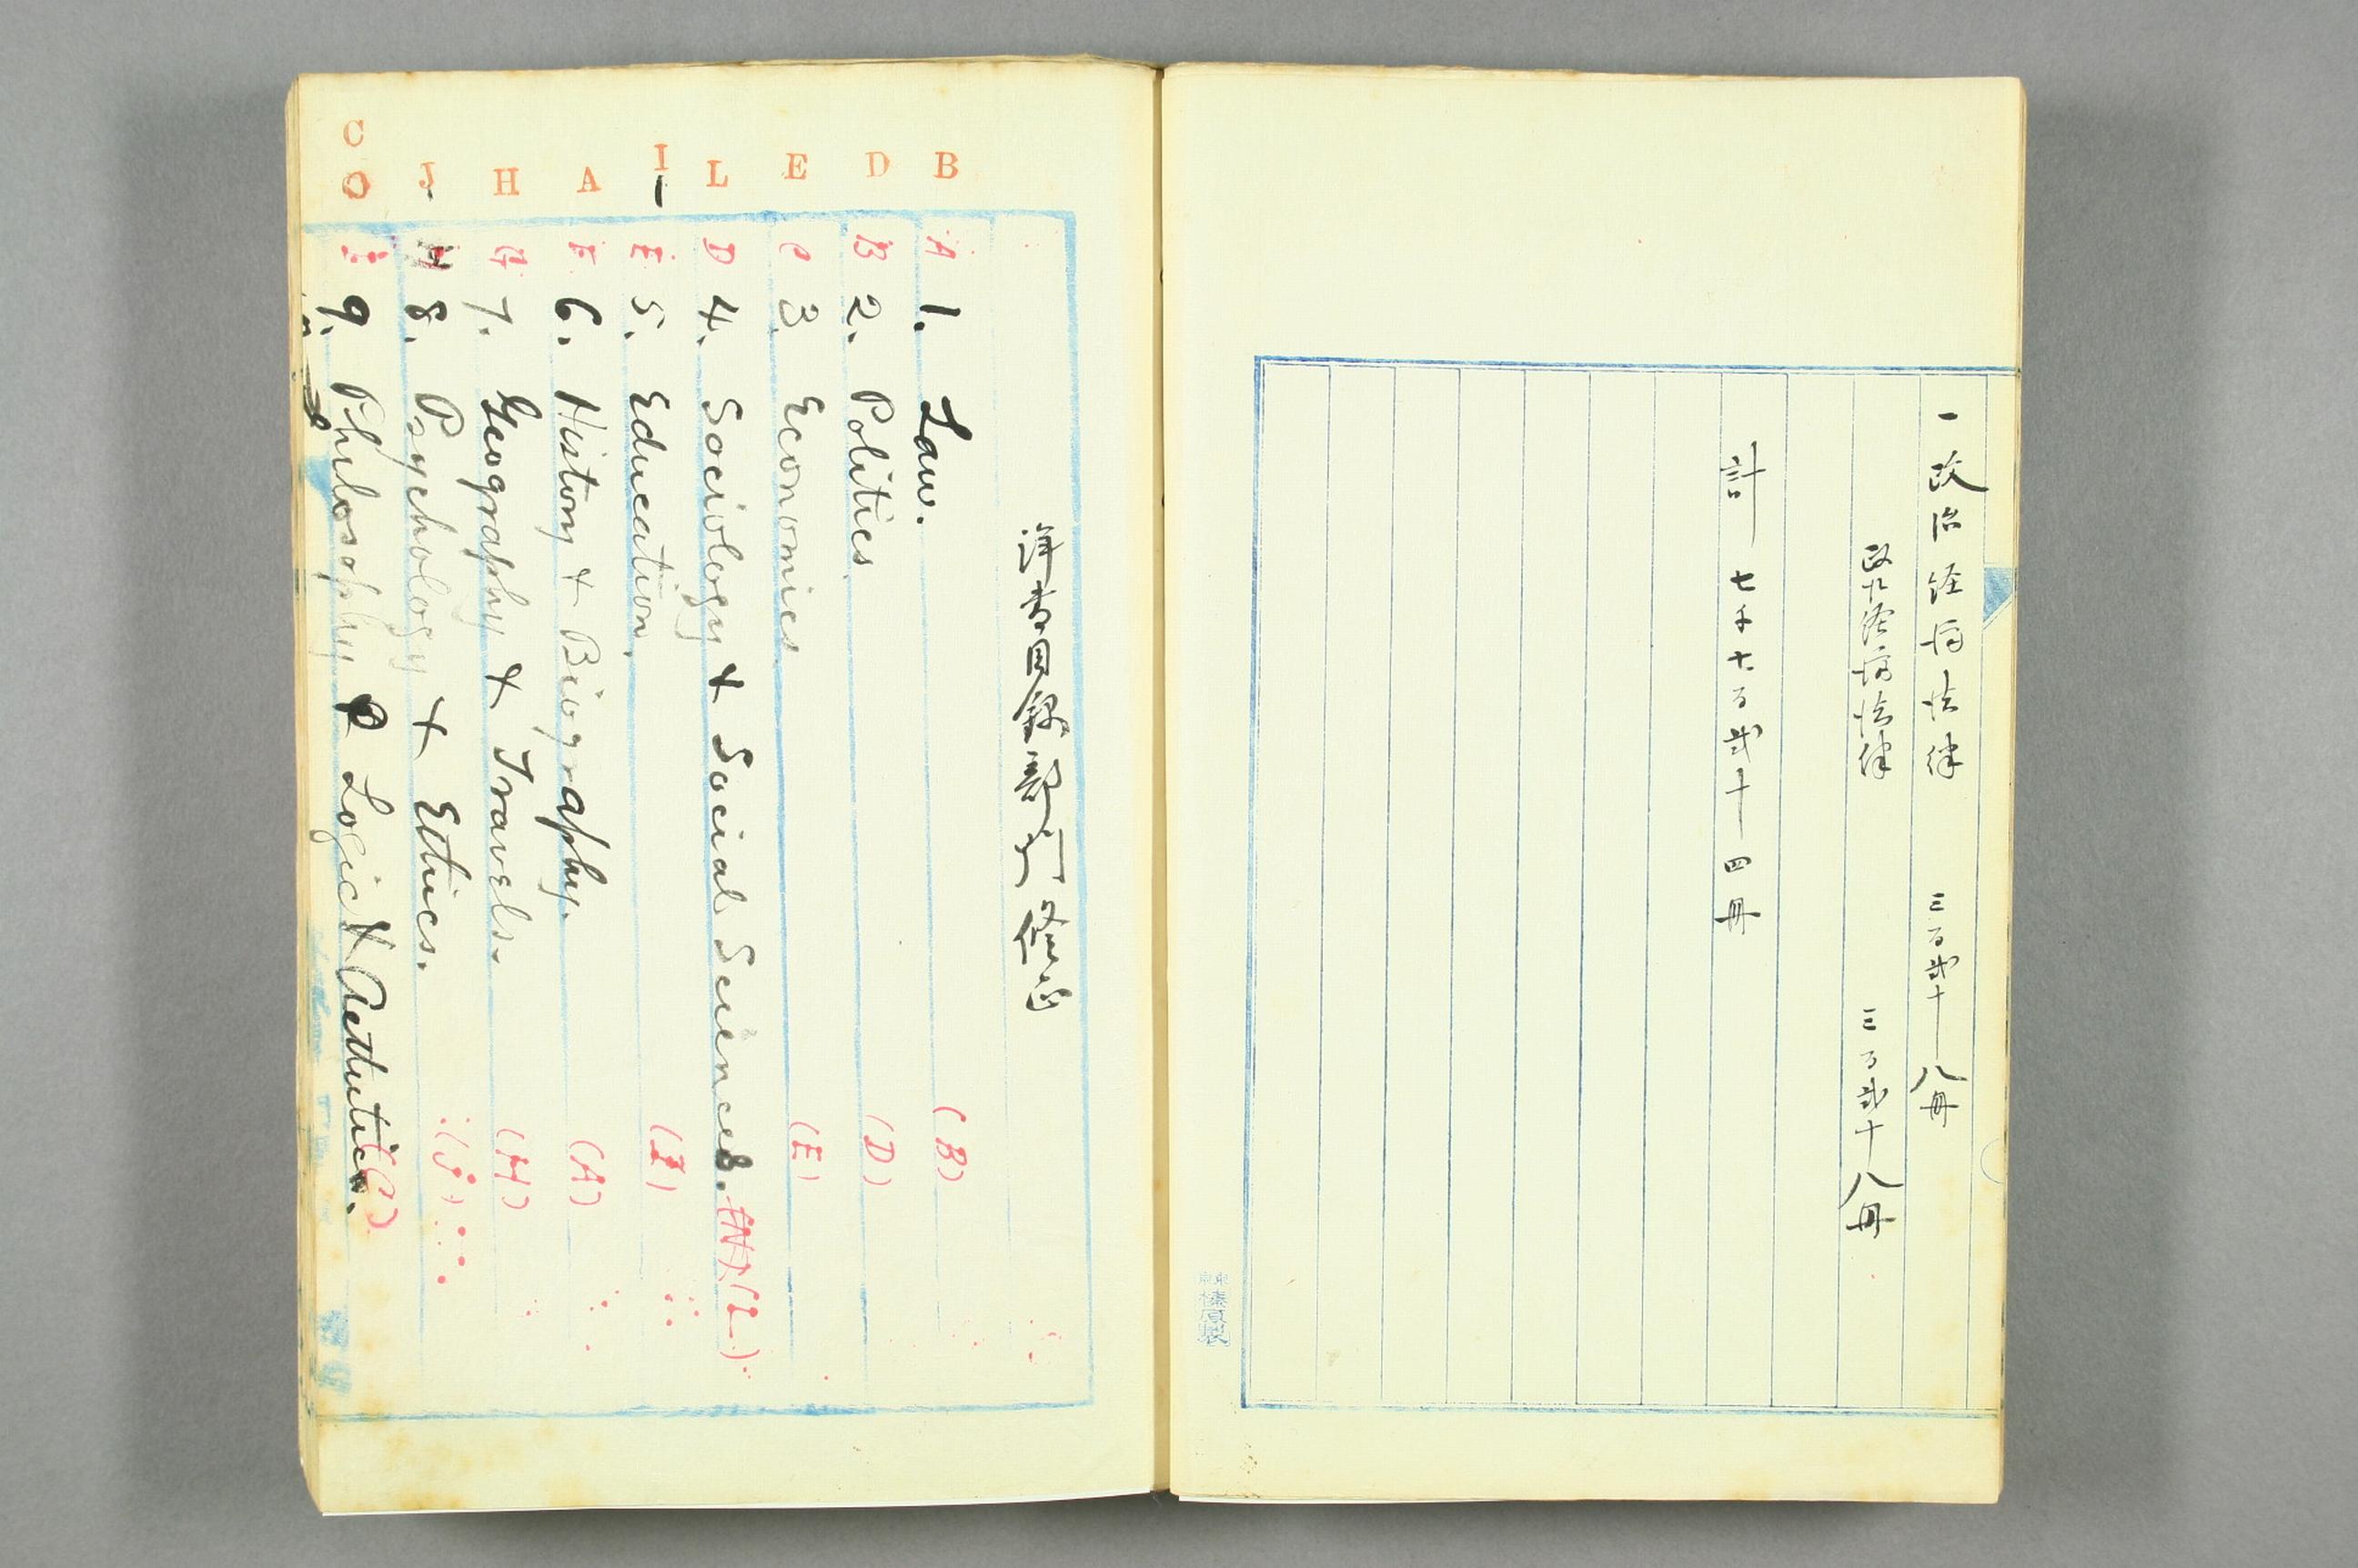 一政治経済法律 三百弐十八冊
政治経済法律 三百弐十八冊
計 七千七百弐十四冊
榛原製
洋書目録部門修正
B A 1. Law. (B)
D B 2. Politics. (D)
E C 3. Economics. (E)
L D 4. Sociology & Social Sciences. (N) (L)
I E 5. Education. (I)
A F 6. History & Biography. (A)
H G 7. Geography & Travels. (H)
J H 8. Psychology & Ethics. (J)
C O I 9. Philosophy & Logic & Aesthetics. (C)